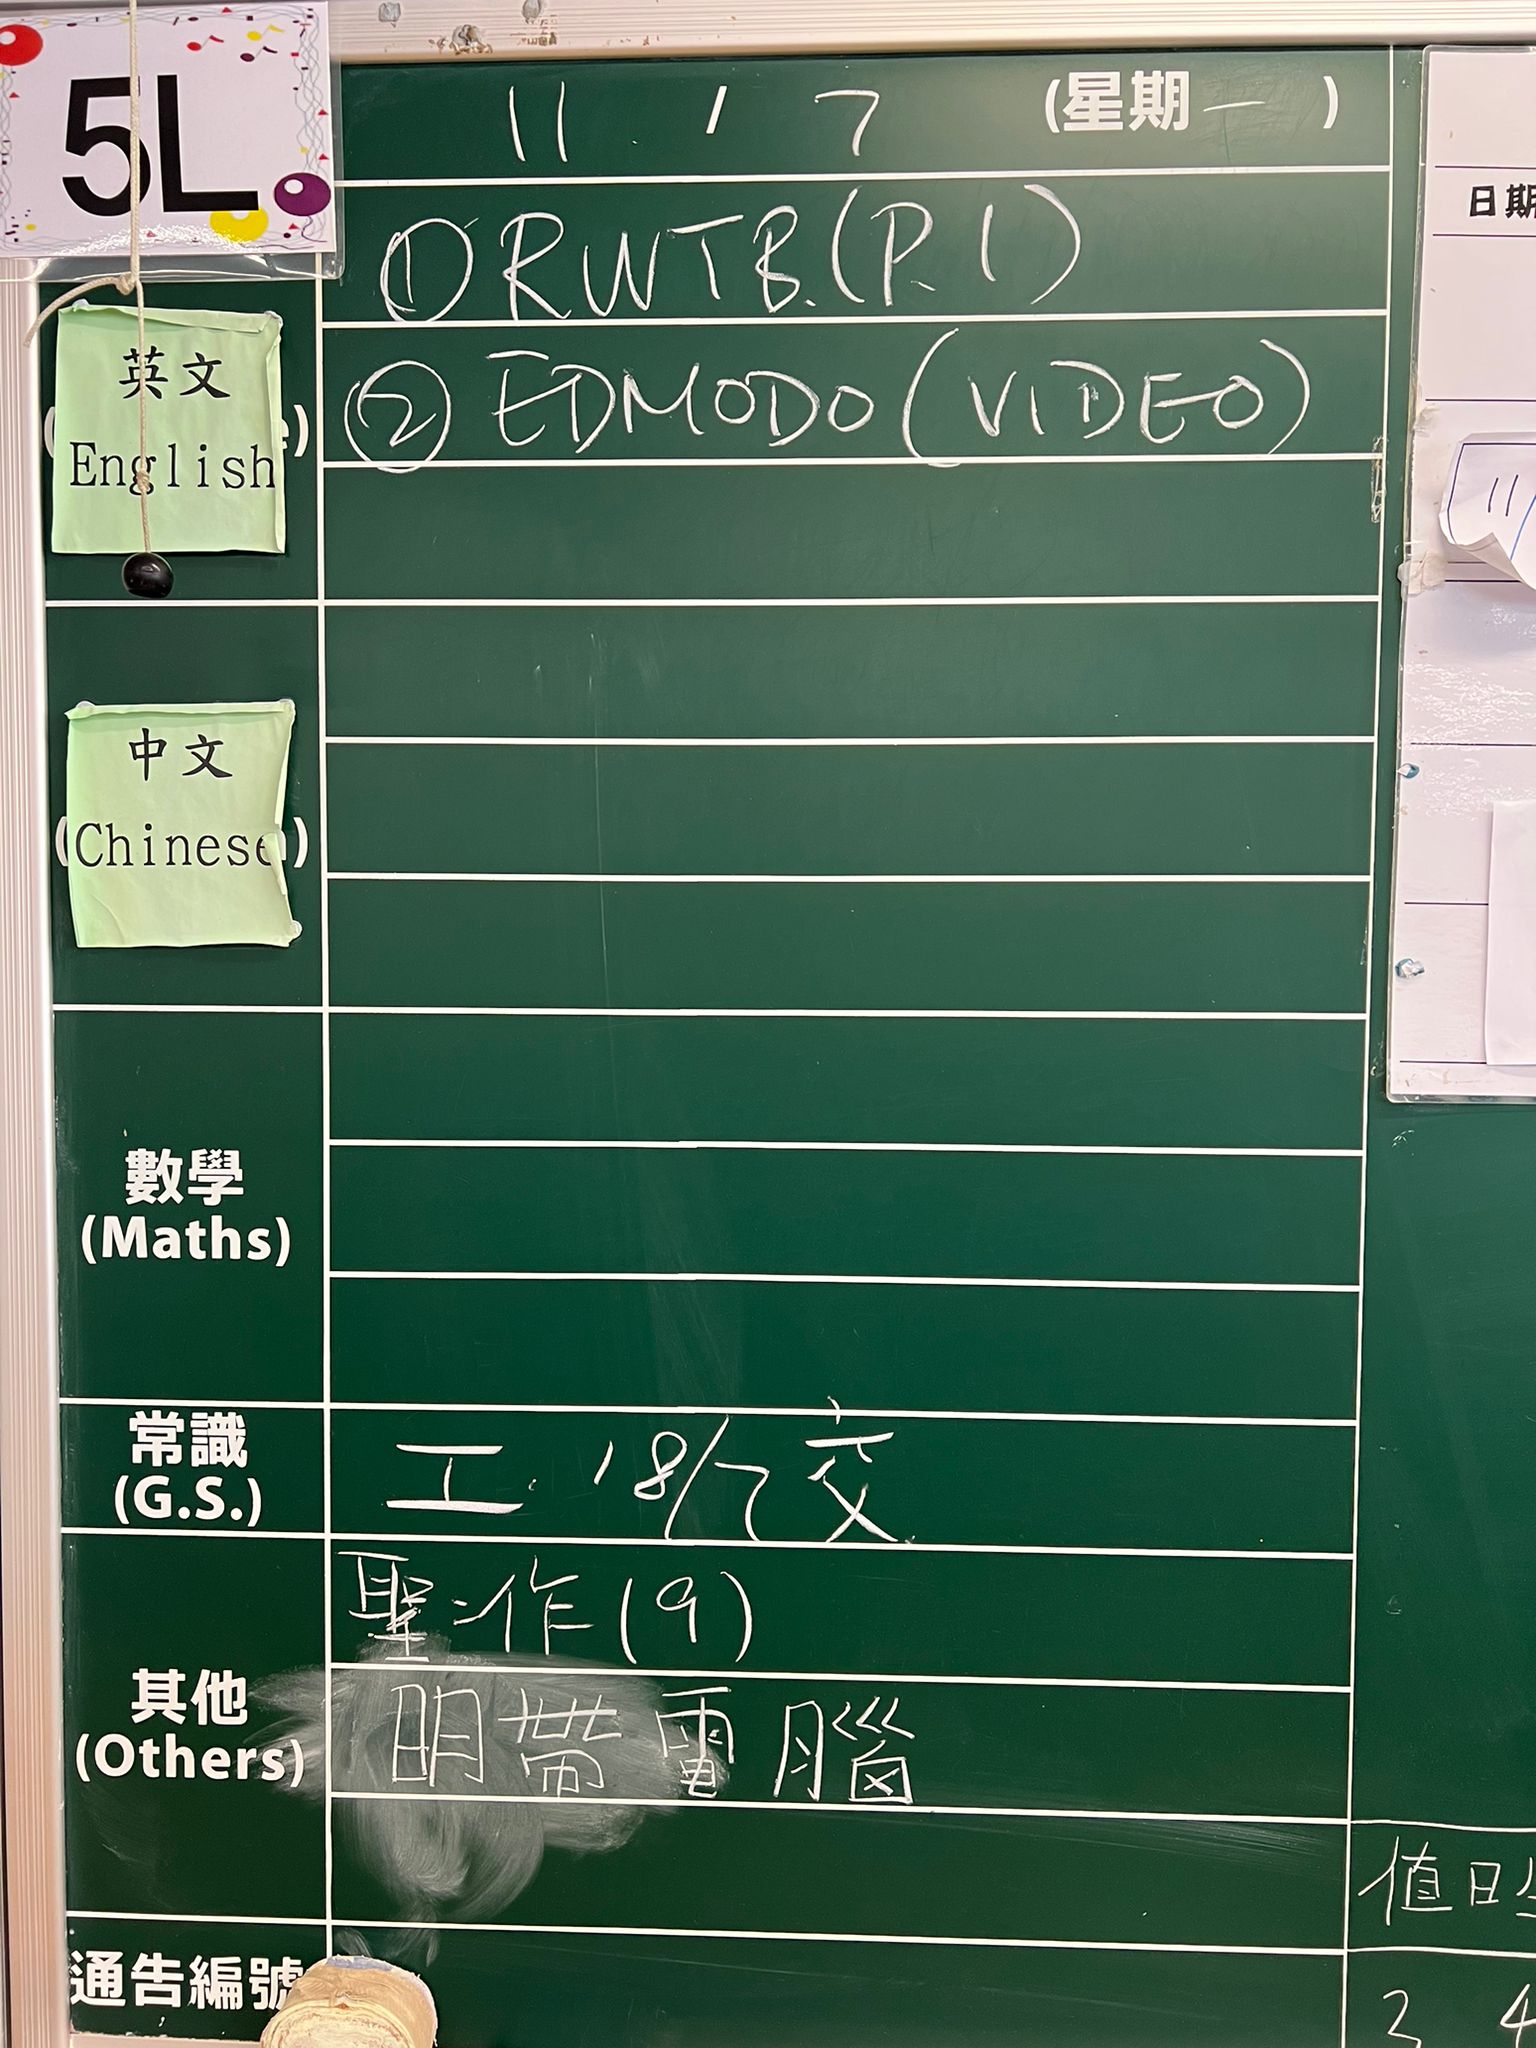 5L
11 / 7 (星期一)
① RWTB.(P.1)
英文
English
② EDMODO (VIDEO)
中文
(Chinese)
數學
(Maths)
常識
(G.S.)
工. 18/7交
聖:作(9)
其他
(Others)
明帶電腦
通告編號
日期
11/
值日
3 4